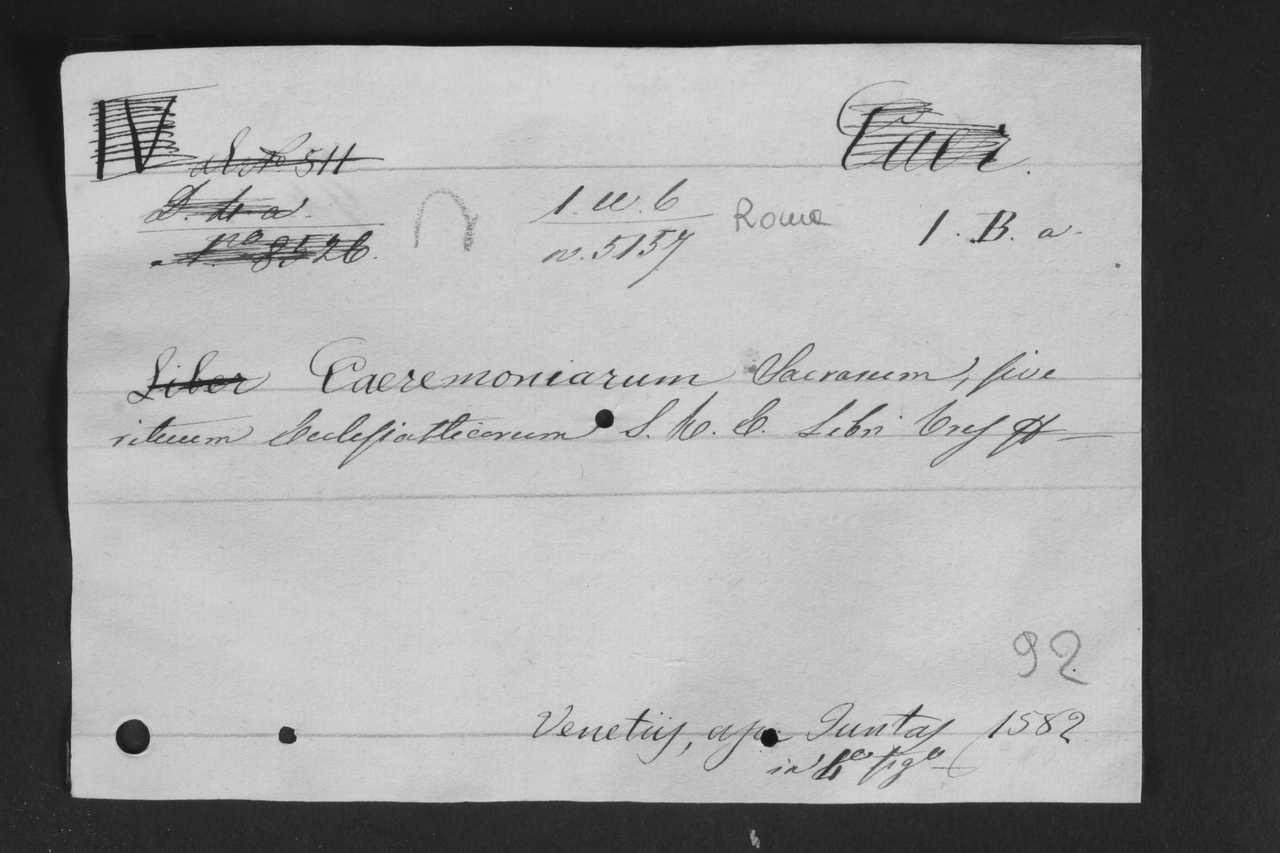 IV
N° 511
D. 4. a.
n.ro 8526.
1. a. 6
n. 5157
Roma
1. B. a.
Liber Caeremoniarum Sacrarum, sive
rituum Ecclesiasticorum S. R. E. Libri tres
92
Venetiis, ap. Juntas 1582
in 4.to fig.to